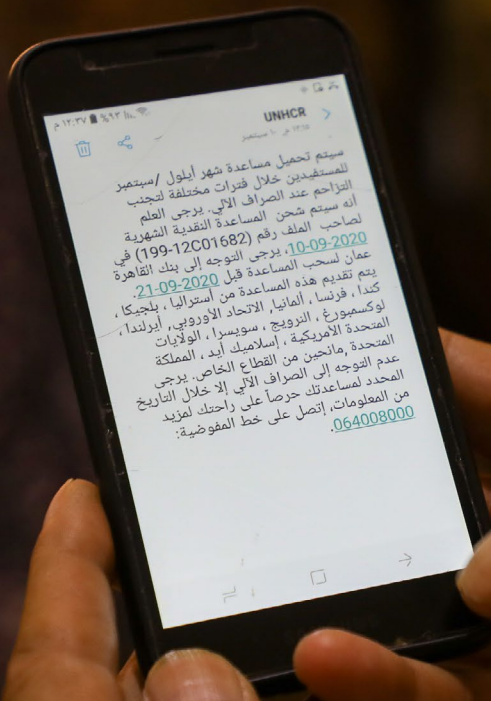 ١٢:٣٧ م %٩٣
UNHCR
سيتم تحميل مساعدة شهر أيلول /سبتمبر
للمستفيدين خلال فترات مختلفة لتجنب
التزاحم عند الصراف الآلي. يرجى العلم
أنه سيتم شحن المساعدة النقدية الشهرية
لصاحب الملف رقم (199-12C01682) في
10-09-2020. يرجى التوجه إلى بنك القاهرة
عمان لسحب المساعدة قبل 21-09-2020.
يتم تقديم هذه المساعدة من أستراليا ، بلجيكا ،
كندا ، فرنسا ، ألمانيا, الاتحاد الأوروبي, أيرلندا ،
لوكسمبورغ ، النرويج ، سويسرا ، الولايات
المتحدة الأمريكية ، إسلاميك أيد ، المملكة
المتحدة ,مانحين من القطاع الخاص. يرجى
عدم التوجه إلى الصراف الآلي إلا خلال التاريخ
المحدد لمساعدتك حرصاً على راحتك لمزيد
من المعلومات، إتصل على خط المفوضية:
064008000.